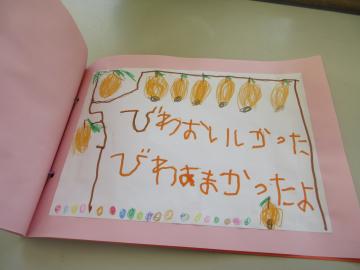 びわおいしかった
びわあまかったよ